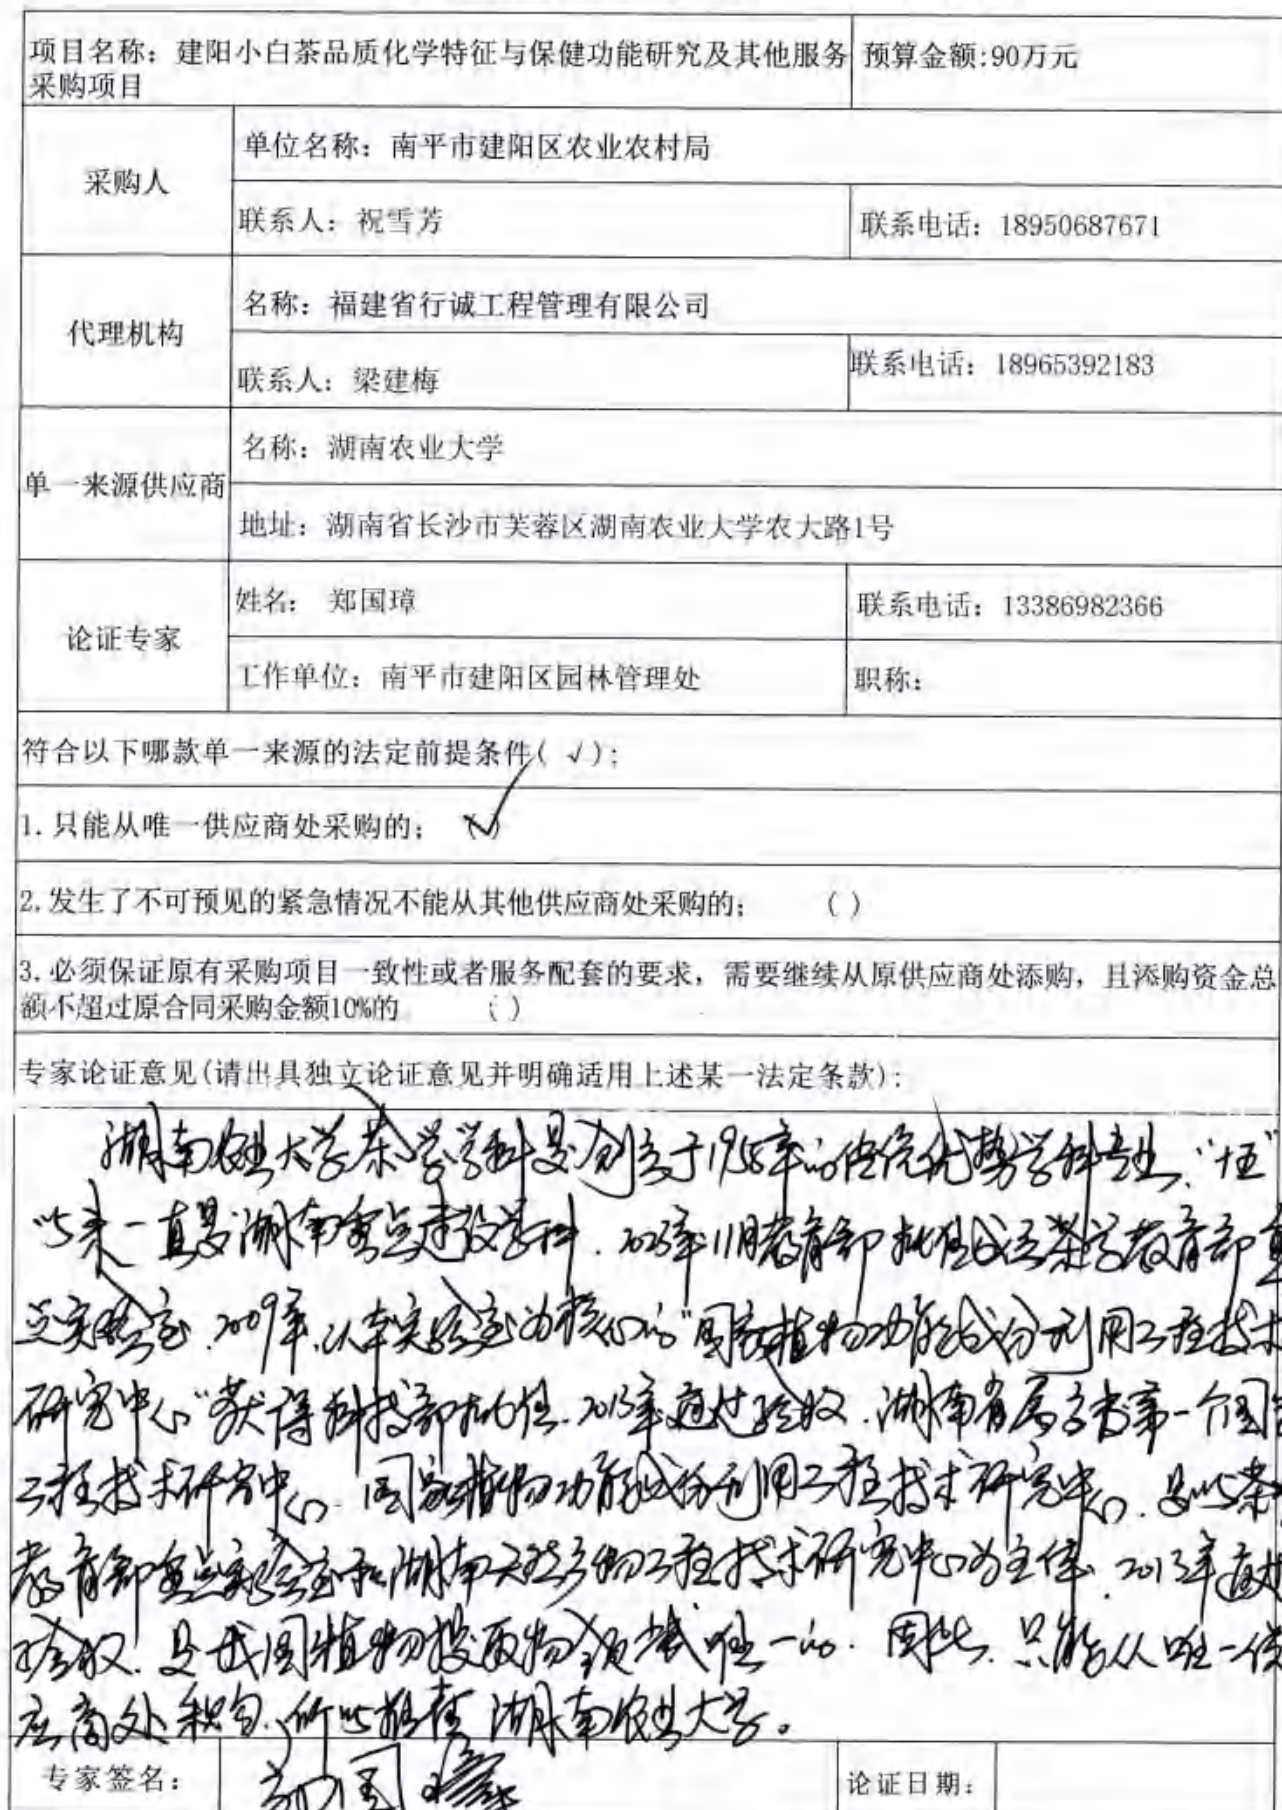 项目名称：建阳小白茶品质化学特征与保健功能研究及其他服务
采购项目
预算金额:90万元
采购人
单位名称：南平市建阳区农业农村局
联系人：祝雪芳
联系电话：18950687671
代理机构
名称：福建省行诚工程管理有限公司
联系人：梁建梅
联系电话：18965392183
单一来源供应商
名称：湖南农业大学
地址：湖南省长沙市芙蓉区湖南农业大学农大路1号
论证专家
姓名： 郑国璋
联系电话：13386982366
工作单位：南平市建阳区园林管理处
职称：
符合以下哪款单一来源的法定前提条件( √)：
1.只能从唯一供应商处采购的； (√)
2.发生了不可预见的紧急情况不能从其他供应商处采购的； ( )
3.必须保证原有采购项目一致性或者服务配套的要求，需要继续从原供应商处添购，且添购资金总
额不超过原合同采购金额10%的 ( )
专家论证意见(请出具独立论证意见并明确适用上述某一法定条款)：
湖南农业大学茶学学科是创立于1958年的传统优势学科专业、“十五”
以来一直是湖南重点建设学科．年11月教育部批准成立茶学教育部重
点实验室．2009年，以本实验室为核心的“国家植物功能成份利用工程技术
研究中心”获得科技部批准．2013年通过验收．湖南省属高校第一个国家
工程技术研究中心．国家植物功能成份利用工程技术研究中心．是以茶
教育部重点实验室和湖南天然产物工程技术研究中心为主体．2013年通过
验收．是我国植物提取物领域唯一的．因此．只能从唯一供
应商处采购．所以推荐湖南农业大学。
专家签名：
郑国璋
论证日期：